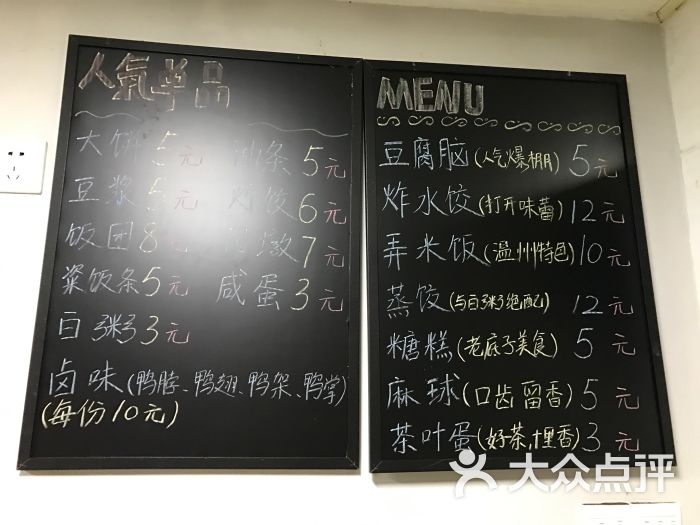 人氣单品
大饼 5元 油条 5元
豆浆 5元 炒饺 6元
饭团 8元 7元
粢饭条 5元 咸蛋 3元
白粥 3元
卤味(鸭脖、鸭翅、鸭架、鸭掌)
(每份10元)
MENU
豆腐脑(人气爆棚) 5元
炸水饺(打开味蕾) 12元
弄米饭(温州特色) 10元
蒸饺(与白粥绝配) 12元
糖糕(老底子美食) 5元
麻球(口齿留香) 5元
茶叶蛋(好茶,十里香) 3元
大众点评